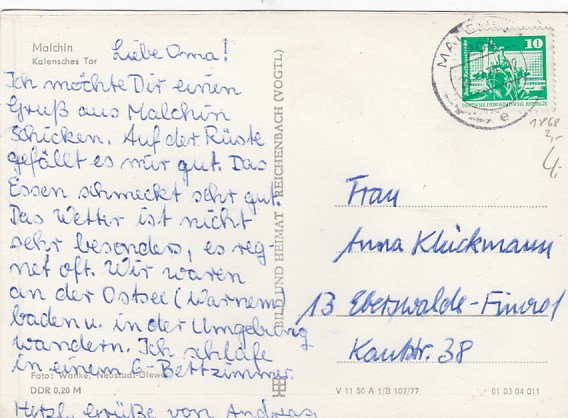 Malchin
Kalensches Tor
Liebe Oma!
Ich möchte Dir einen
Gruß aus Malchin
schicken. Auf der Rüste
gefällt es mir gut. Das
Essen schmeckt sehr gut.
Das Wetter ist nicht
sehr besonders, es reg
net oft. Wir waren
an der Ostsee (Warnem)
baden u. in der Umgebung
wandern. Ich schlafe
in einem 6-Bettzimmer
Herzl. Grüße von Andreas.
Foto: Wanke, Neustadt-Glewe
DDR 0,20 M
BILD UND HEIMAT REICHENBACH (VOGTL)
10
DEUTSCHE DEMOKRATISCHE REPUBLIK
e
Frau
Anna Klückmann
13 Eberswalde-Finow 1
Kantstr. 38
V 11 50 A 1/B 107/77
01 03 04 011